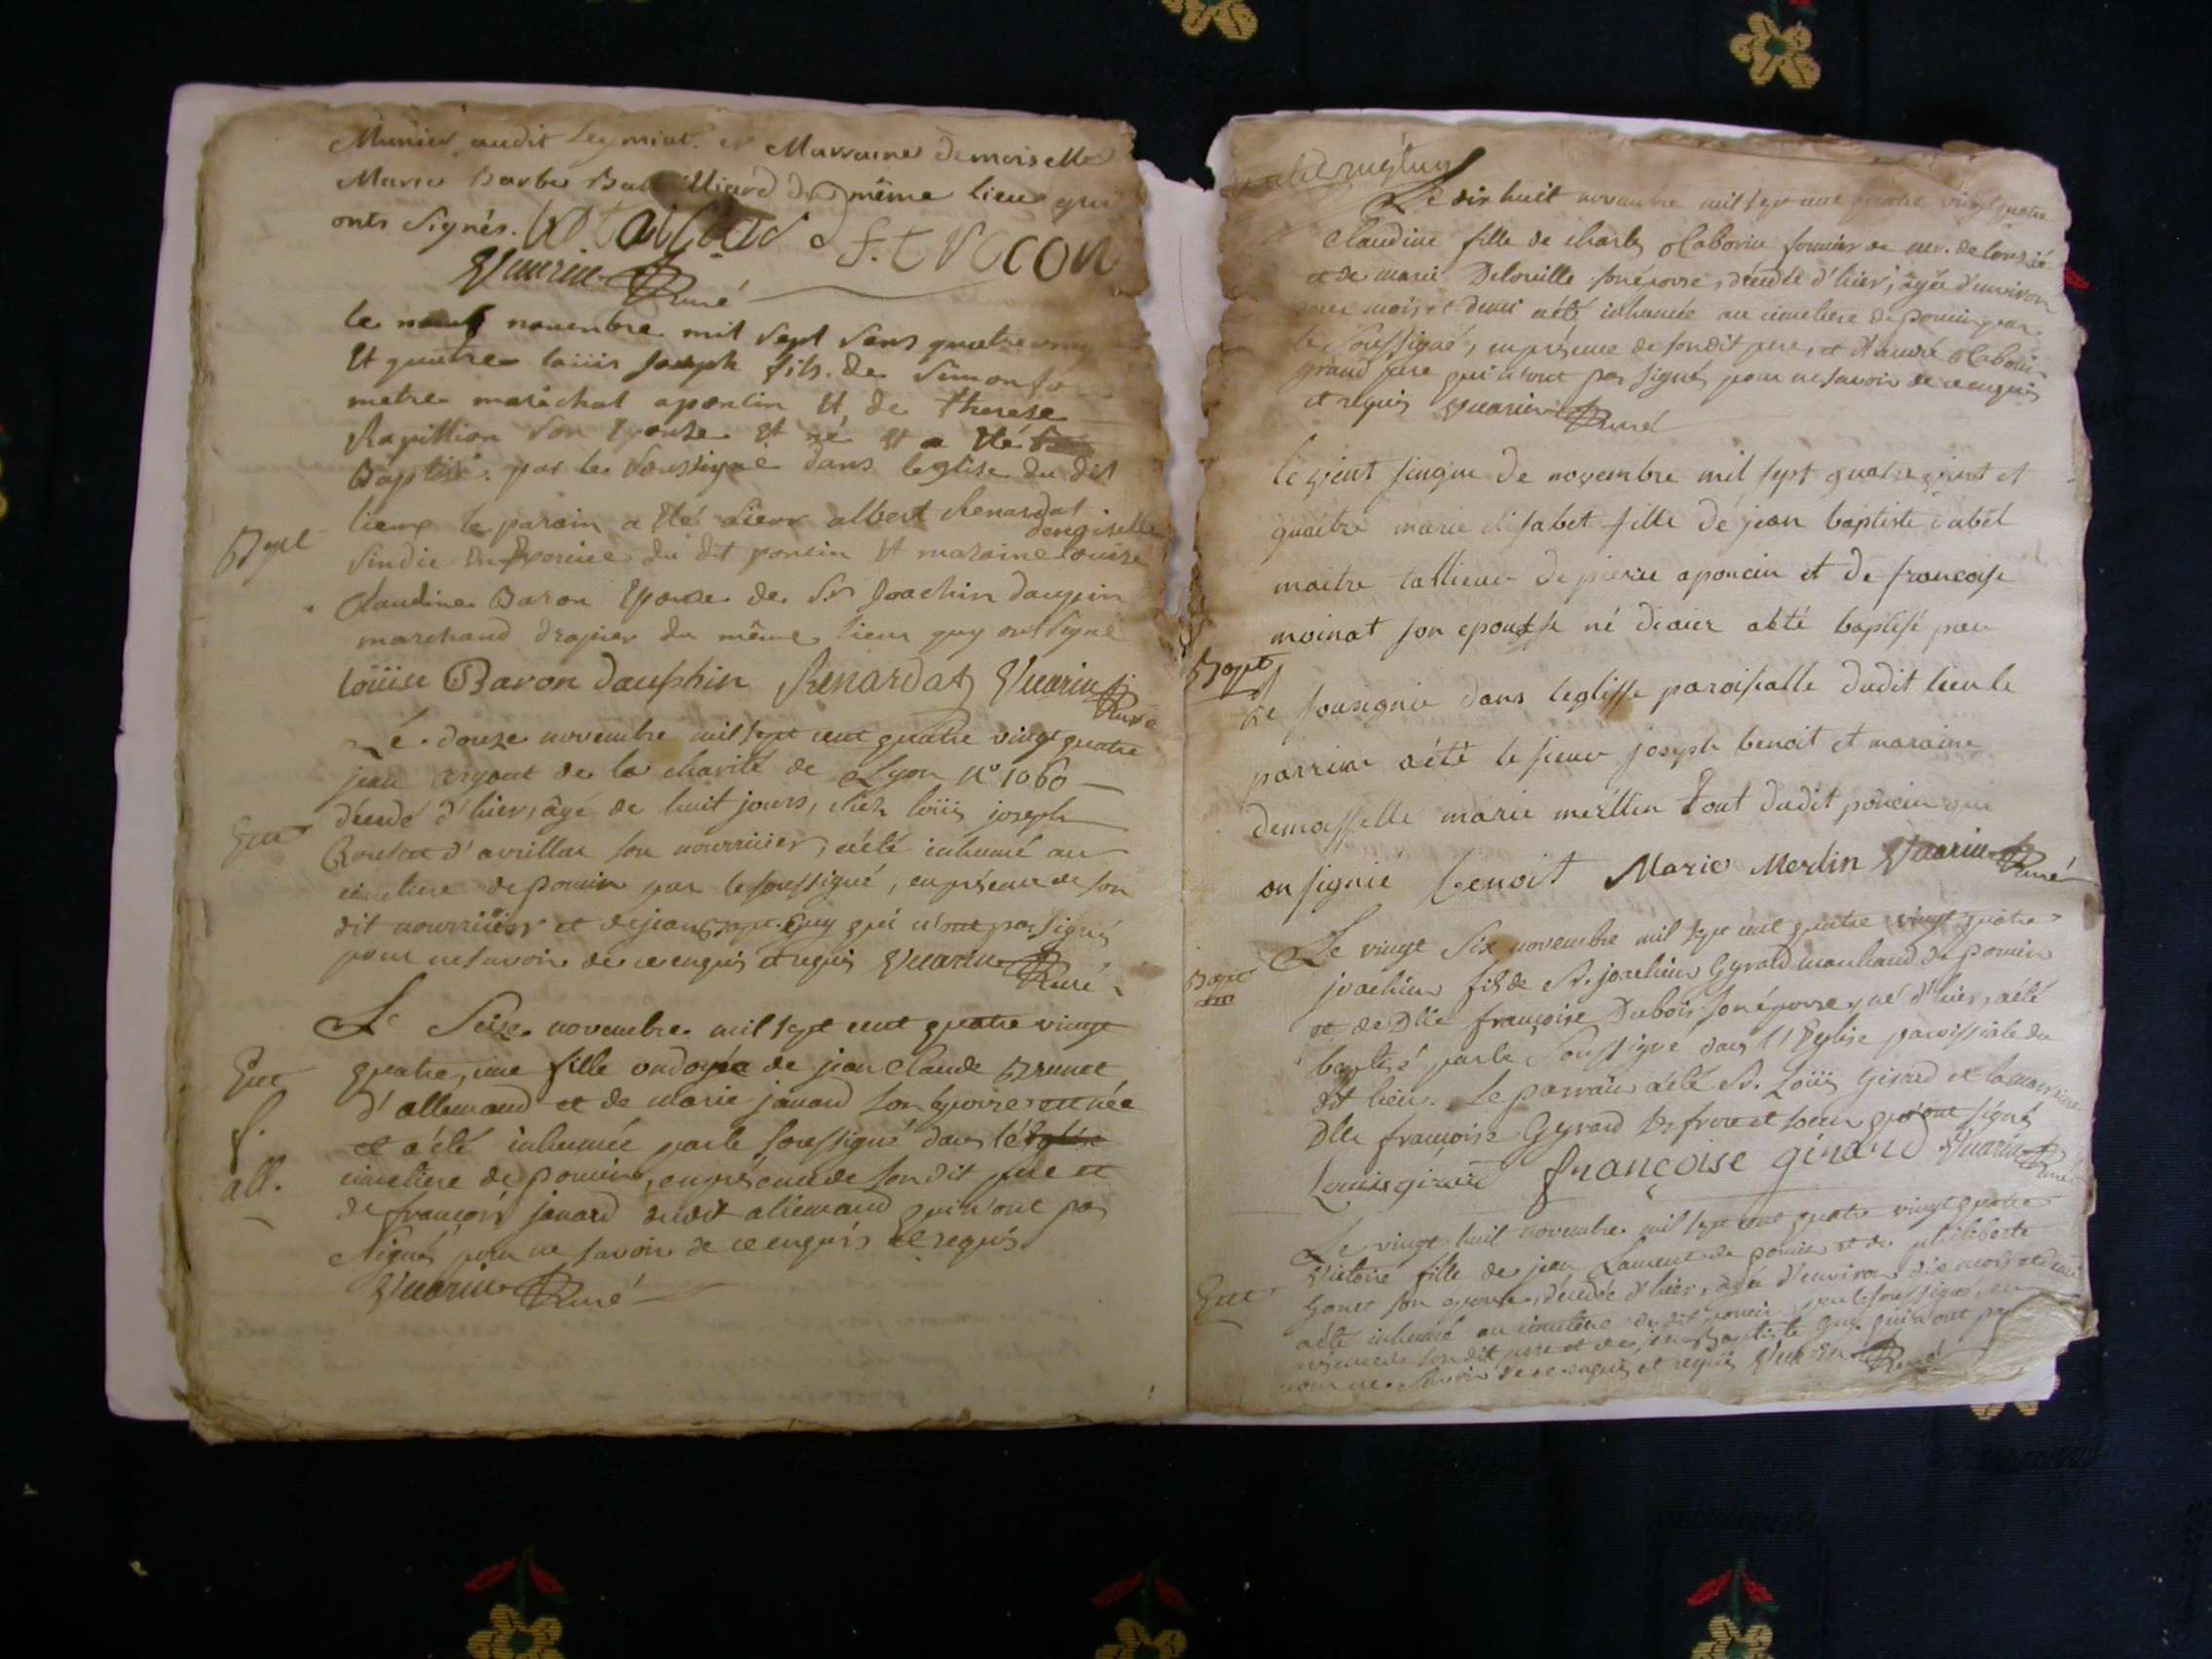 Munier audit Leymiat. et Marraine demoiselle
Marie Barbe du même lieu qui
onts signés.
Vuarin Curé
le neuf novembre mil sept sens quatre ving
Et quattre loüis Joseph fils de Simon
metre maréchal aponcin Et de therese
Rapillion son Epouse Et né Et a Eté
Baptisé par le soussigné dans leglise du dit
lieux le parain a Eté sieur albert Renardat
Bapt
sindic En Exercice du dit poncin Et maraine demoiselle louise
Claudine Baron Epouse de Sr Joachin daupin
marchand drapier du même lieux quy ont signé
loüise Baron dauphin Renardat Vuarin Curé
Le douze novembre mil sept cent quatre vingt quatre
jean argout de la charité de Lyon n° 1060
décedé d'hier, âgé de huit jours, chez loüis joseph
Ent
d'avrillac son nourricier, a été inhumé au
cimetiere de poncin par le soussigné, en présence de son
dit nourricier et de jean Bapt. Guy qui n'ont pas signé
pour ne savoir de ce enquis et requis Vuarin Curé
Le Seize novembre mil sept cent quatre vingt
Ent
quatre, une fille ondoyée de jean Claude Brunet
d'allemand et de marie janard son épouse
f.
et a été inhumée par le soussigné dans l'église
all.
cimetiere de poncin, en présence de son dit pere et
de françois janard dudit allemand qui n'ont pas
signés pour ne savoir de ce enquis et requis
Vuarin Curé
Le dix huit novembre mil sept cent quatre vingt quatre
Claudine fille de charles
et de marie Deloville son épouse, décedée d'hier, âgée d'environ
mois et demi a été inhumée au cimetiere de poncin par
le soussigné, en présence de son dit pere, et
grand pere qui n'ont pas signés pour ne savoir de ce enquis
et requis Vuarin Curé
le vient sinque de novembre mil sept quatre vient et
quaitre marie elisabet fille de jean baptiste
maitre tallieur de pierre aponcin et de francoise
moinat son epousse né diaier a été baptisé par
Bapt
le sousignie dans leglisse paroisialle dudit lieu le
parrin a été le sieur joseph benoit et maraine
demoisselle marie merllin tout dudit poncin qui
on signié benoit Marie Merlin Vuarin Curé
Le vingt six novembre mil sept cent quatre vingt quatre
Bapt
joachim fils de Sr. joachim Gyrard marchand de poncin
et de Dlle françoise Dubois son épouse, né d'hier, a été
baptisé par le soussigné dans l'Eglise paroissiale du
dit lieu. Le parrain a été Sr. Loüis Girard et la marraine
Dlle françoise Gyrard ses frere et soeur qui ont signé
Louis girard françoise girard Vuarin Curé
Le vingt huit novembre mil sept cent quatre vingt quatre
Victoire fille de jean Laurent de poncin et de philiberte
Ent
Gonet son épouse, décedée d'hier, âgée d'environ dix mois et demi
a été inhumé au cimetiere du dit poncin par le soussigné, en
présence de son dit pere et de jean Baptiste Guy qui n'ont pas
pour ne savoir de ce enquis et requis Vuarin Curé